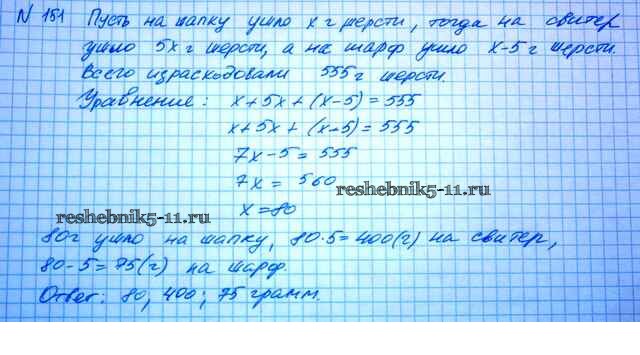 N 151 Пусть на шапку ушло x г шерсти, тогда на свитер
ушло 5x г шерсти, а на шарф ушло x-5 г шерсти.
Всего израсходовали 555 г шерсти.
Уравнение: x+5x+(x-5)=555
x+5x+(x-5)=555
7x-5=555
7x = 560
reshebnik5-11.ru
x=80
reshebnik5-11.ru
80г ушло на шапку, 80·5=400(г) на свитер,
80-5=75(г) на шарф.
Ответ: 80, 400; 75 грамм.